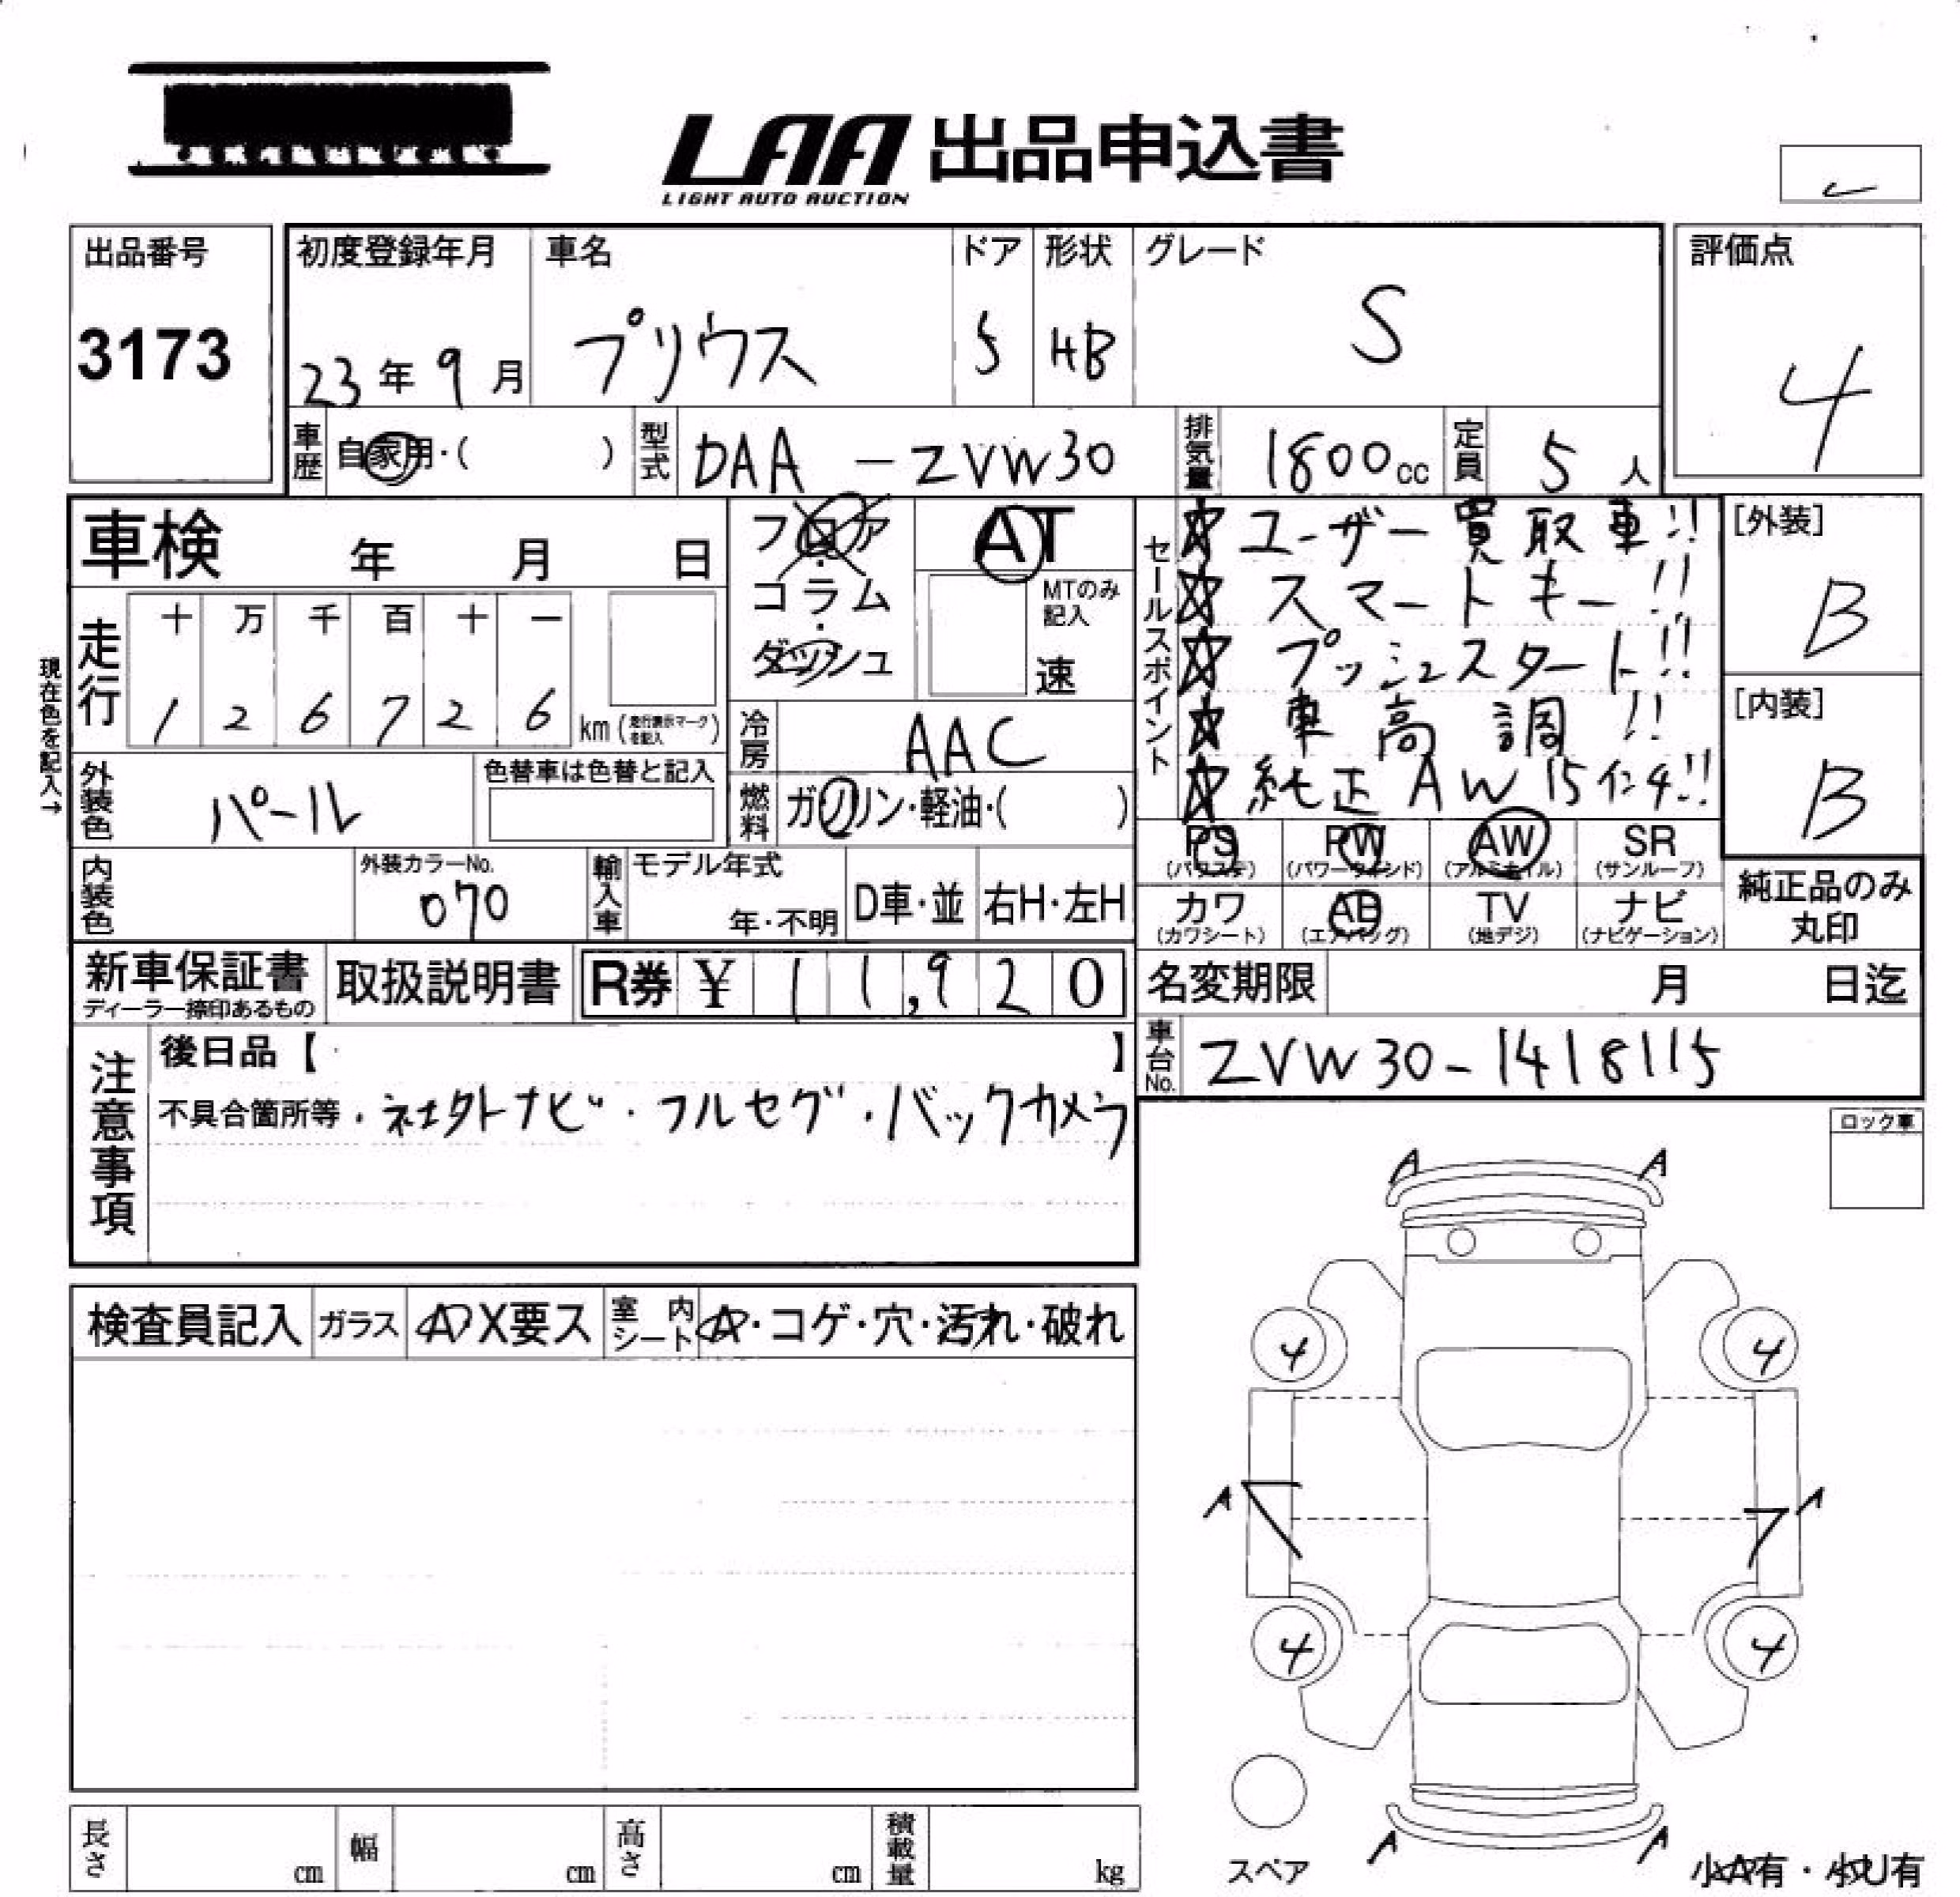 LAA 出品申込書
LIGHT AUTO AUCTION
出品番号 初度登録年月 車名 ドア 形状 グレード 評価点
3173 23年9月 プリウス 5 HB S 4
車歴 自家用・( ) 型式 DAA-ZVW30 排気量 1800cc 定員 5人
車検 年 月 日
フロア・コラム・ダッシュ
AT
MTのみ記入
速
セールスポイント
☆ユーザー買取車!!
☆スマートキー!!
☆プッシュスタート!!
☆車高調!!
☆純正AW15インチ!!
[外装]
B
[内装]
B
現在色を記入→
走行 十 万 千 百 十 一
1 2 6 7 2 6 km (走行表示マークを記入)
冷房 AAC
外装色 パール 色替車は色替と記入
燃料 ガソリン・軽油・( )
PS (パワステ) PW (パワーウインド) AW (アルミホイル) SR (サンルーフ)
カワ (カワシート) AB (エアバッグ) TV (地デジ) ナビ (ナビゲーション)
純正品のみ丸印
内装色 外装カラーNo. 070 輸入車 モデル年式 年・不明 D車・並 右H・左H
新車保証書 ディーラー捺印あるもの 取扱説明書 R券 ¥11,920
名変期限 月 日迄
車台No. ZVW30-1418115
注意事項
後日品【 】
不具合箇所等・社外ナビ・フルセグ・バックカメラ
ロック車
A A
検査員記入 ガラス A X要ス 室内シート A・コゲ・穴・汚れ・破れ
4 4
A A
4 4
スペア
A A
小A有・小U有
長さ cm 幅 cm 高さ cm 積載量 kg